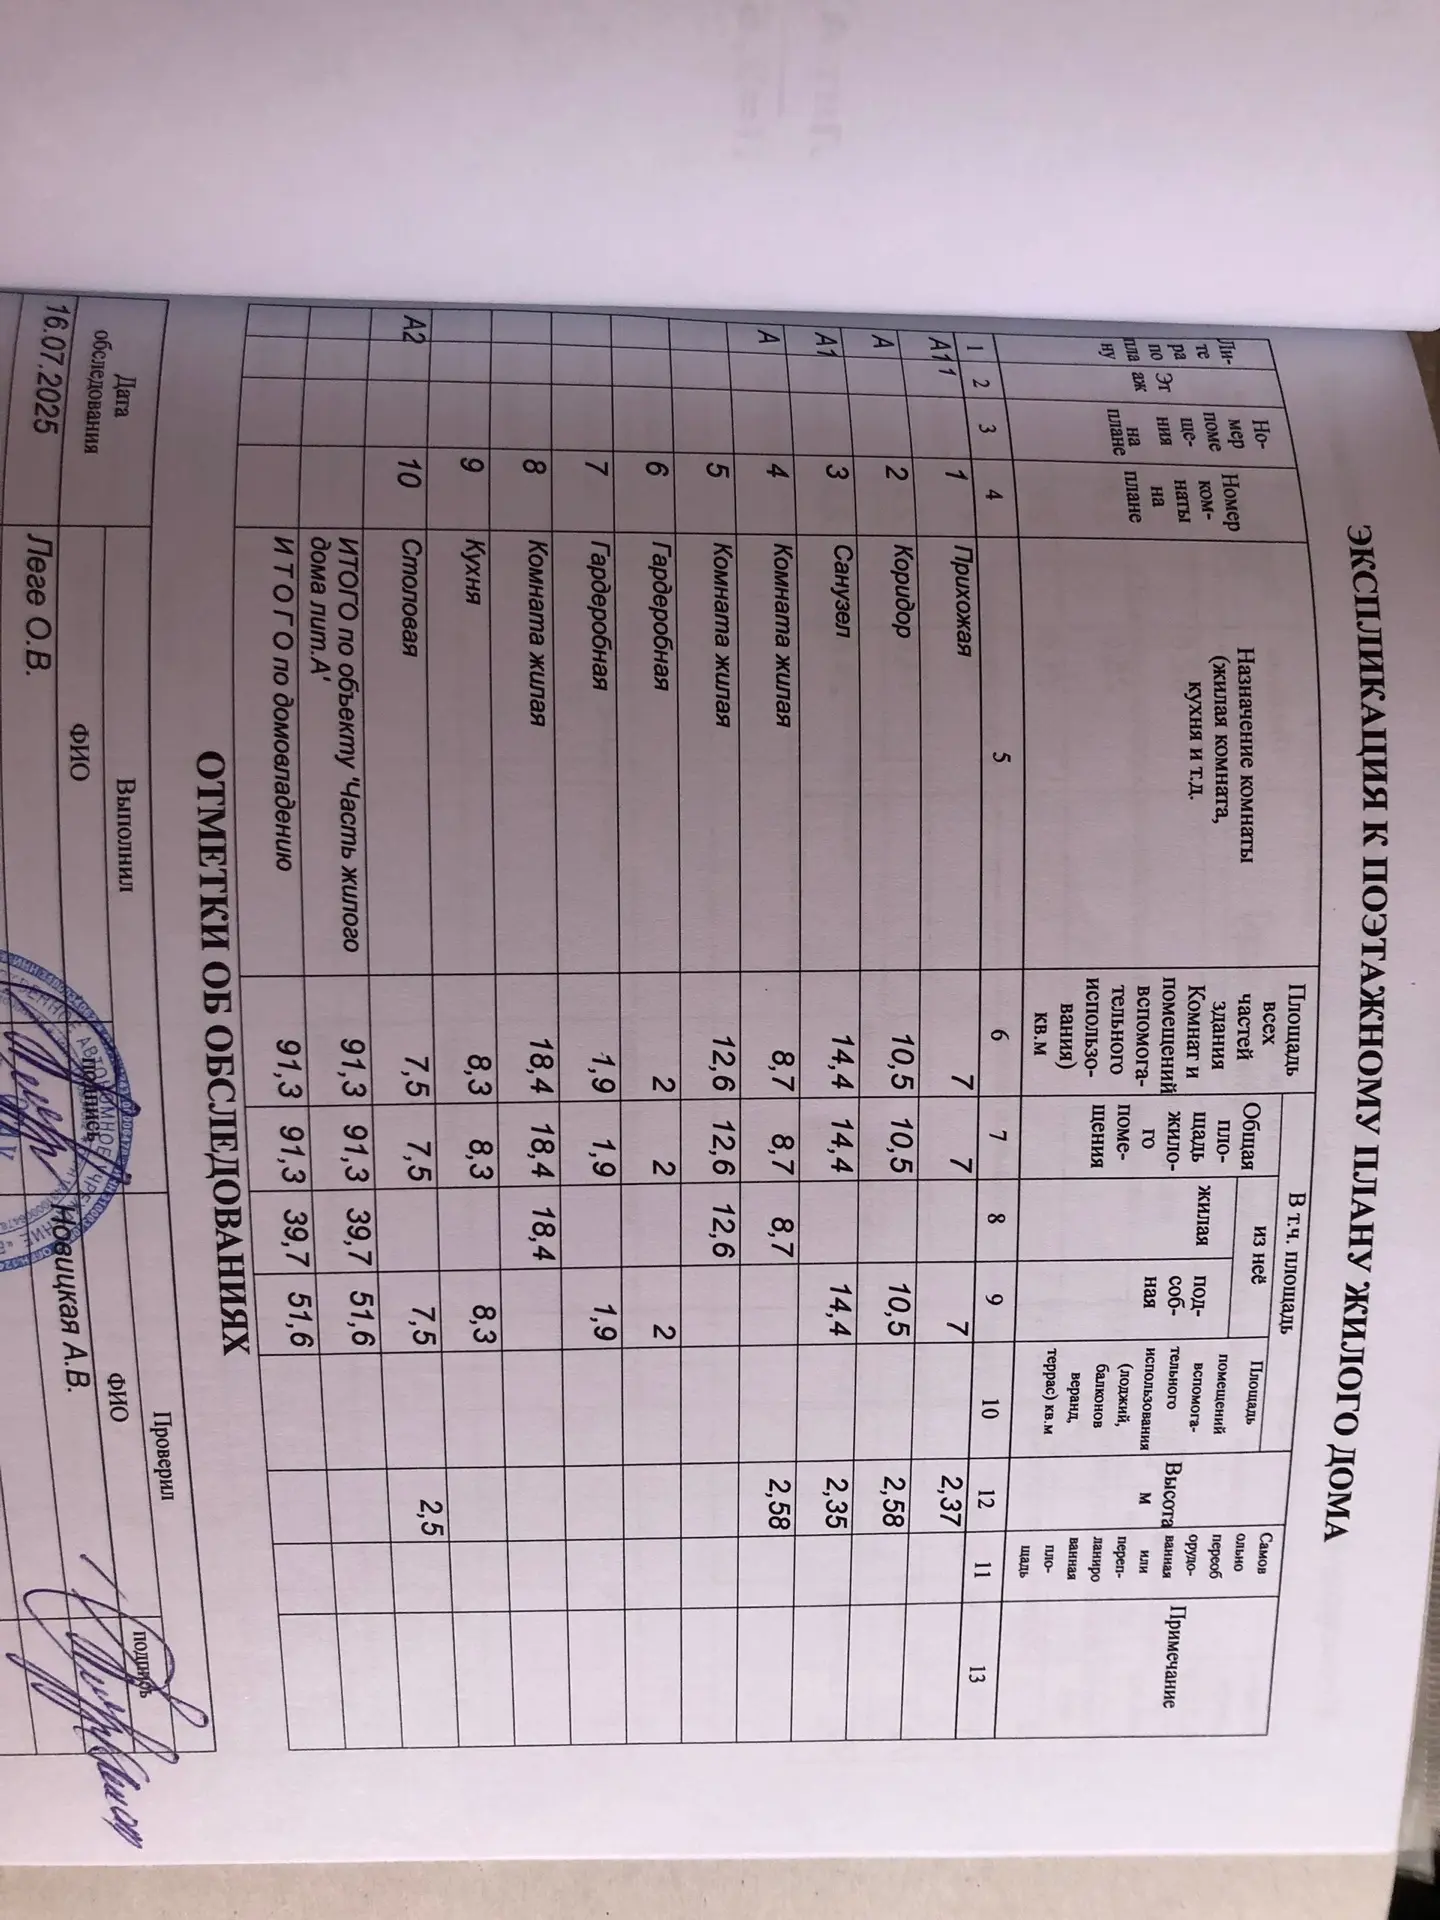 ЭКСПЛИКАЦИЯ К ПОЭТАЖНОМУ ПЛАНУ ЖИЛОГО ДОМА
Ли-
те
ра
по
пла
ну
Эт
аж
Но-
мер
поме
ще-
ния
на
плане
Номер
ком-
наты
на
плане
Назначение комнаты
(жилая комната,
кухня и т.д.
Площадь
всех
частей
здания
Комнат и
помещений
вспомога-
тельного
использо-
вания)
кв.м
В т.ч. площадь
Общая
пло-
щадь
жило-
го
поме-
щения
из неё
жилая
под-
соб-
ная
Площадь
помещений
вспомога-
тельного
использования
(лоджий,
балконов
веранд,
террас) кв.м
Высота
м
Самов
ольно
переоб
орудо-
ванная
или
переп-
ланиро
ванная
пло-
щадь
Примечание
1 2 3 4 5 6 7 8 9 10 12 11 13
А1 1 1 Прихожая 7 7 7 2,37
А 2 Коридор 10,5 10,5 10,5 2,58
А1 3 Санузел 14,4 14,4 14,4 2,35
А 4 Комната жилая 8,7 8,7 8,7 2,58
5 Комната жилая 12,6 12,6 12,6
6 Гардеробная 2 2 2
7 Гардеробная 1,9 1,9 1,9
8 Комната жилая 18,4 18,4 18,4
9 Кухня 8,3 8,3 8,3
А2 10 Столовая 7,5 7,5 7,5 2,5
ИТОГО по объекту 'Часть жилого
дома лит.А' 91,3 91,3 39,7 51,6
И Т О Г О по домовладению 91,3 91,3 39,7 51,6
ОТМЕТКИ ОБ ОБСЛЕДОВАНИЯХ
Дата
обследования
Выполнил
Проверил
ФИО
подпись
ФИО
подпись
16.07.2025 Леге О.В. Новицкая А.В.